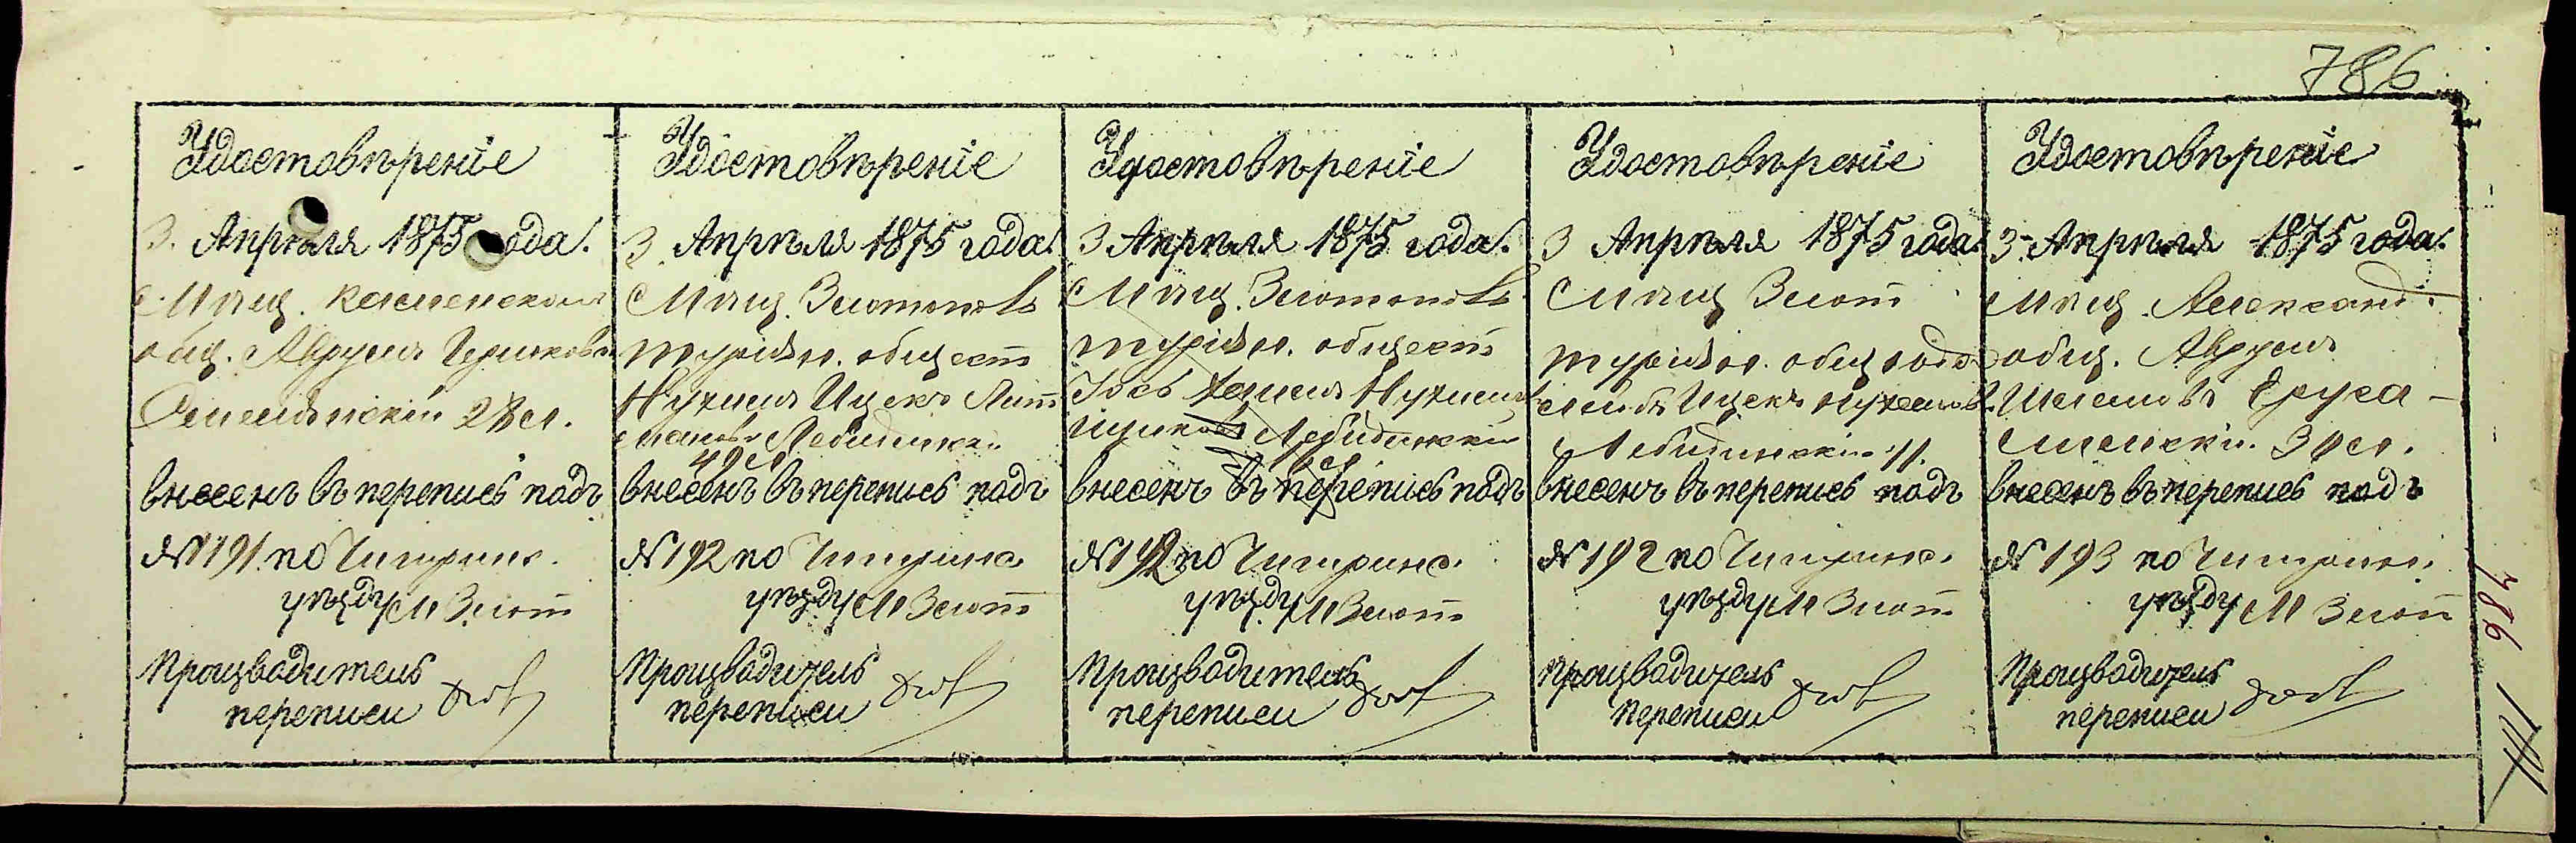 786
Удостовѣреніе
3. Апрѣля 1875 года.
Мѣщ. Каменскаго
общ. Аврумъ Ицковъ
28 л.
внесенъ въ перепись подъ
№ 191. по Чигринс.
уѣзду М Злот
Производитель
переписи
Удостовѣреніе
3. Апрѣля 1875 года.
Мѣщ. Златополь
турійск. общест
Нухимъ Ицекъ
Лебединскій
49 л
внесенъ въ перепись подъ
№ 192 по Чигринс
уѣзду М Злот
Производитель
переписи
Удостовѣреніе
3 Апрѣля 1875 года.
Мѣщ. Златополь
турійск. общест
Іось Нухим
Ицков Лебединскій
внесенъ въ перепись подъ
№ 192 по Чигринс.
уѣзду М Злот
Производитель
переписи
Удостовѣреніе
3 Апрѣля 1875 года.
Мѣщ Злот
турійск. общ
Ицекъ Нухимов
Лебединскій 11.
внесенъ въ перепись подъ
№ 192 по Чигринс.
уѣзду М Злот
Производитель
переписи
Удостовѣреніе
3 Апрѣля 1875 года.
Мѣщ. Александ.
общ. Аврумъ
Шлемовъ Еруса-
лимскій. 30 л.
внесенъ въ перепись подъ
№ 193 по Чигринс.
уѣзду М Злот
Производитель
переписи
786